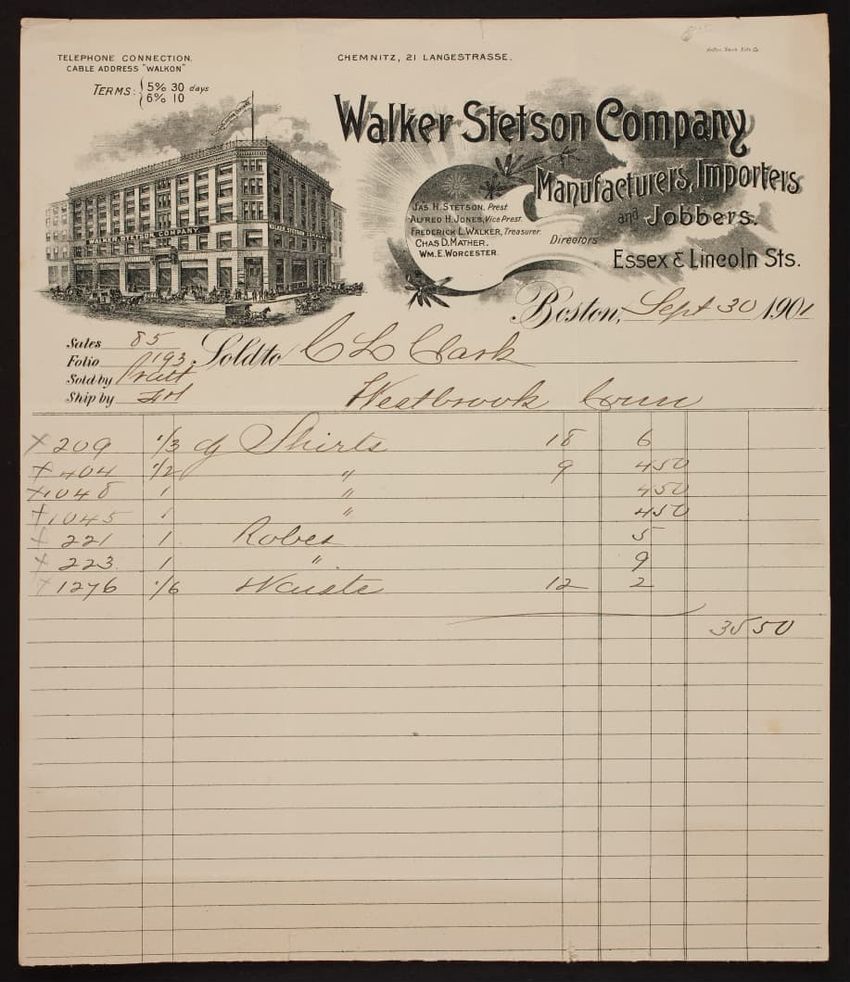 TELEPHONE CONNECTION.
CABLE ADDRESS "WALKON"
CHEMNITZ, 21 LANGESTRASSE.
TERMS: 5% 30 days
6% 10
Walker Stetson Company
Manufacturers, Importers
and Jobbers.
JAS H. STETSON, Prest.
ALFRED H. JONES, Vice Prest.
FREDERICK L. WALKER, Treasurer.
CHAS D. MATHER.
WM. E. WORCESTER.
Directors
Essex & Lincoln Sts.
WALKER STETSON COMPANY
Boston, Sept 30 1901
Sales 85
Folio 193
Sold by
Ship by
Sold to C L Clark
Westbrook Conn
x 209 1/3 dz Shirts 18 6
x 404 1/2 " 9 450
x 1048 1 " 450
x 1045 1 " 450
x 221 1 Robes 5
x 223 1 " 9
x 1276 1/6 Waists 12 2
35 50